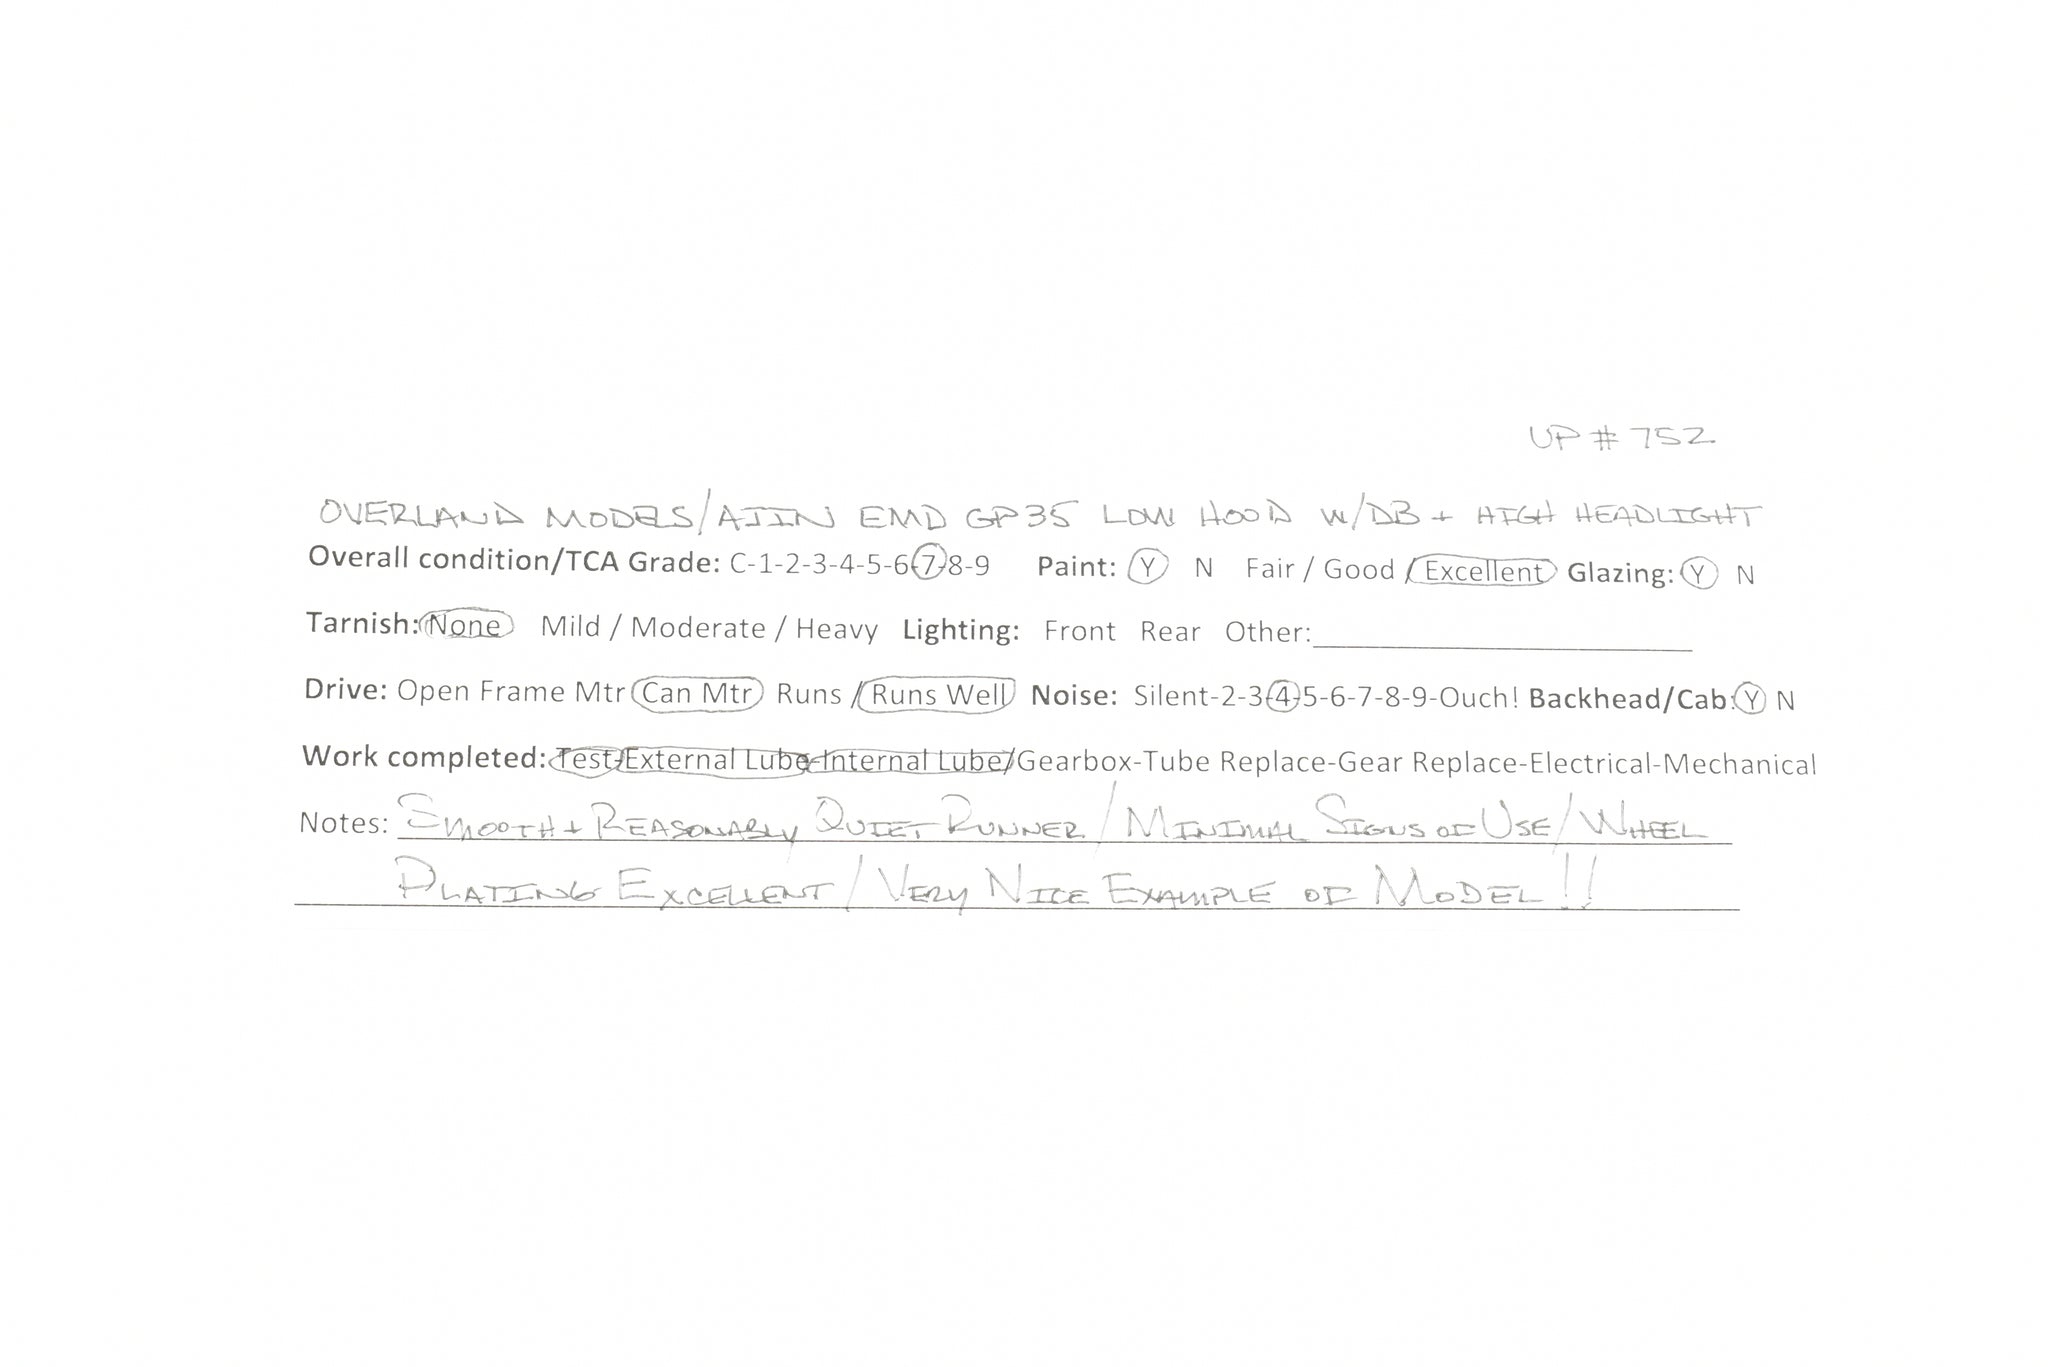 UP # 752
OVERLAND MODELS/AJIN EMD GP35 LOW HOOD W/DB + HIGH HEADLIGHT
Overall condition/TCA Grade: C-1-2-3-4-5-6-7-8-9 Paint: Y N Fair / Good / Excellent Glazing: Y N
Tarnish: None Mild / Moderate / Heavy Lighting: Front Rear Other:
Drive: Open Frame Mtr Can Mtr Runs / Runs Well Noise: Silent-2-3-4-5-6-7-8-9-Ouch! Backhead/Cab: Y N
Work completed: Test-External Lube-Internal Lube/Gearbox-Tube Replace-Gear Replace-Electrical-Mechanical
Notes: SMOOTH + REASONABLY QUIET RUNNER / MINIMAL SIGNS OF USE / WHEEL
PLATING EXCELLENT / VERY NICE EXAMPLE OF MODEL!!